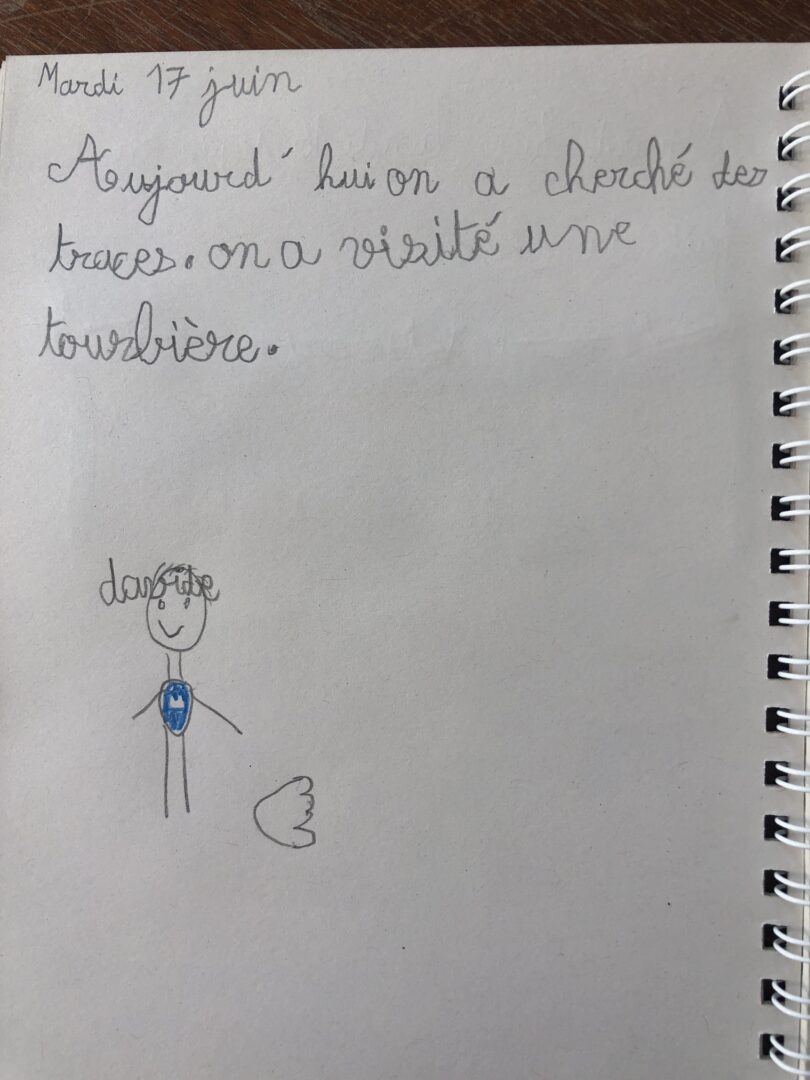 Mardi 17 juin
Aujourd'hui on a cherché des
traces. on a visité une
tourbière.
davide